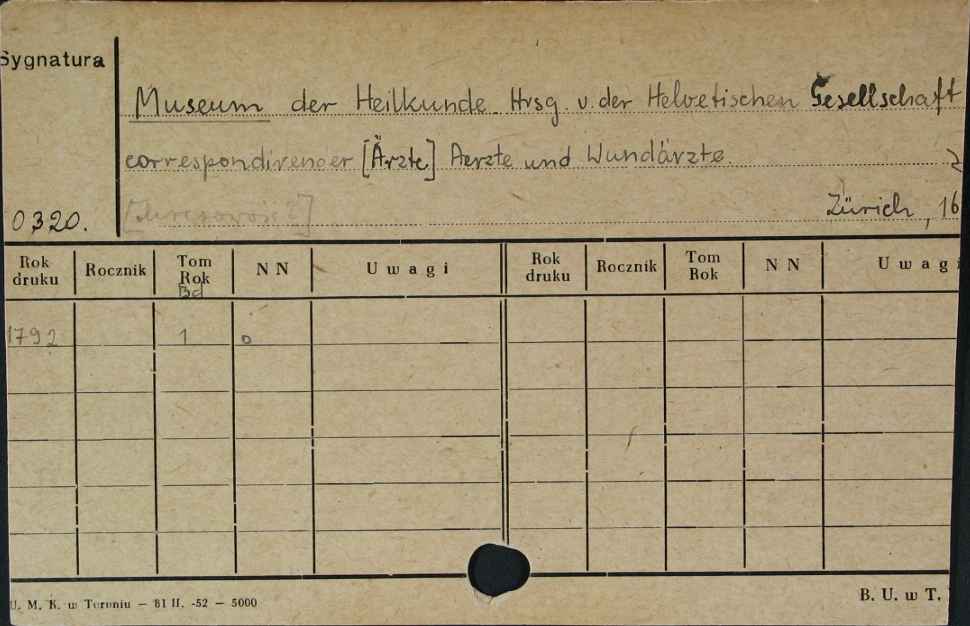 Sygnatura
Museum der Heilkunde. Hrsg. v. der Helvetischen Gesellschaft
correspondirender [Ärzte] Aerzte und Wundärzte.
0320.
Zürich, 16
Rok druku Rocznik Tom Rok Bd N N Uwagi Rok druku Rocznik Tom Rok N N Uwagi
1792 1 o
U. M. K. w Toruniu — 81 II. -52 — 5000
B. U. w T.